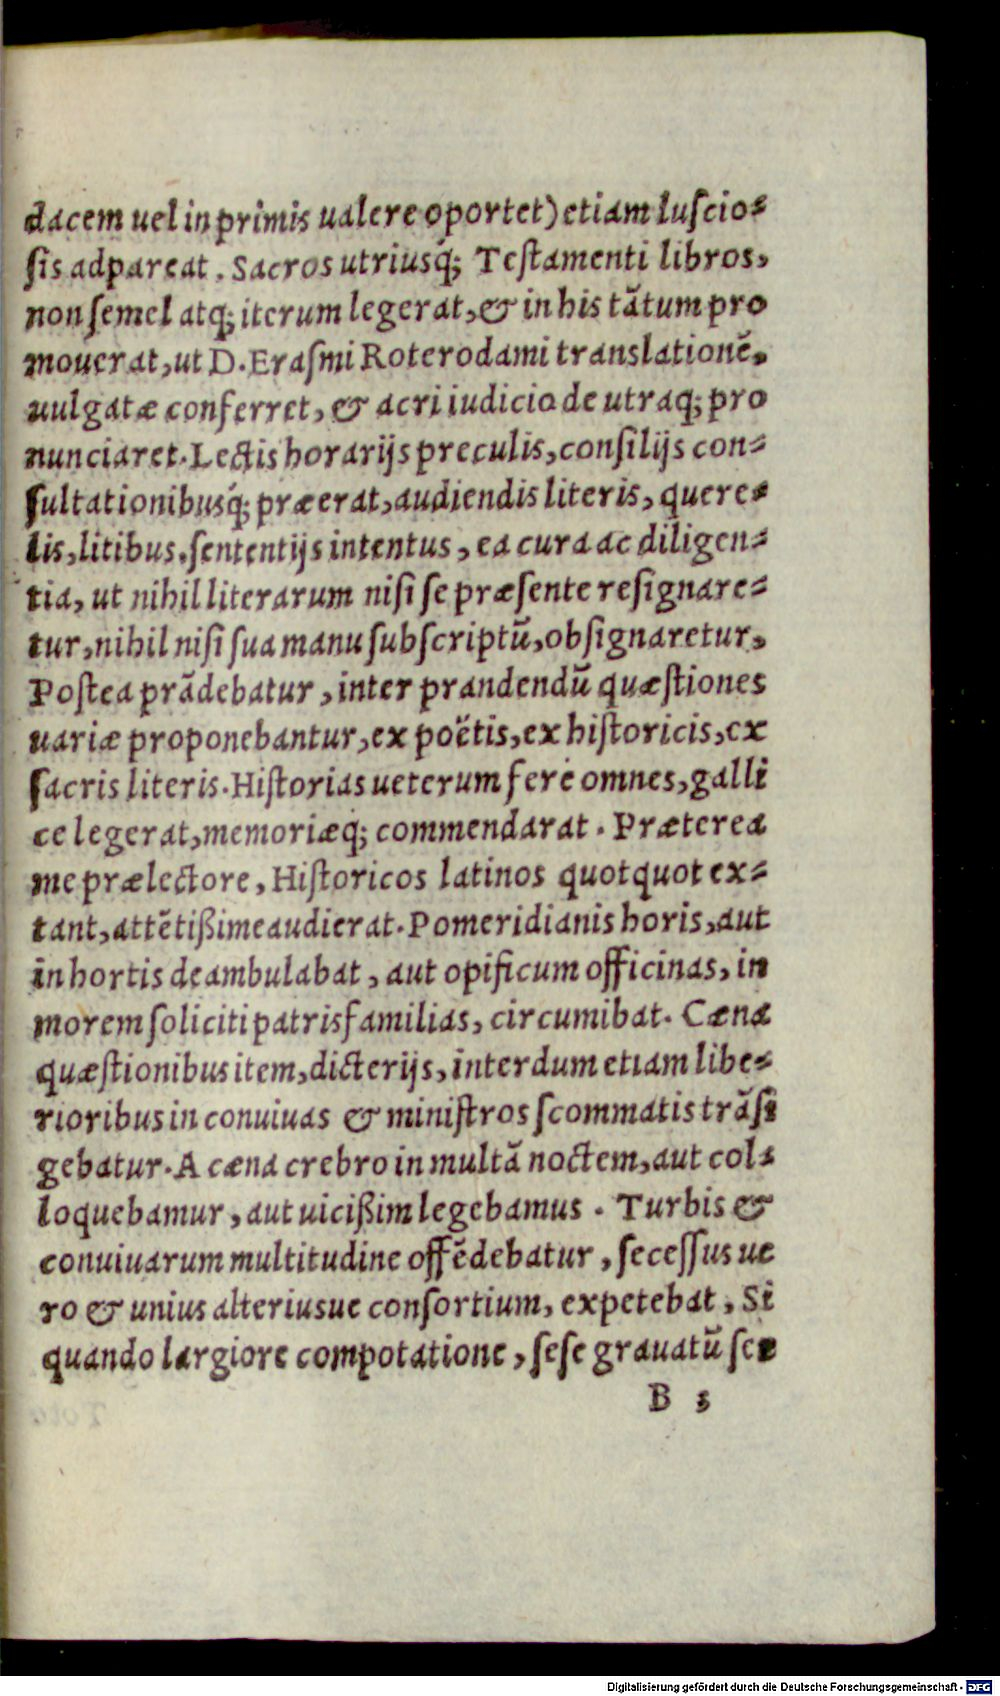 dacem uel in primis ualere oportet) etiam luſcio-
ſis adpareat. Sacros utriusq́; Teſtamenti libros,
non ſemel atq; iterum legerat, & in his tãtum pro
mouerat, ut D. Eraſmi Roterodami translationẽ,
uulgatæ conferret, & acri iudicio de utraq; pro
nunciaret. Lectis horarijs preculis, conſilijs con-
ſultationibusq́; præerat, audiendis literis, quere-
lis, litibus. ſententijs intentus, ea cura ac diligen-
tia, ut nihil literarum niſi ſe præſente reſignare-
tur, nihil niſi ſua manu ſubſcriptũ, obſignaretur,
Poſtea prãdebatur, inter prandendũ quæſtiones
uariæ proponebantur, ex poëtis, ex hiſtoricis, ex
ſacris literis. Hiſtorias ueterum ferè omnes, galli
ce legerat, memoriæq́; commendarat. Præterea
me prælectore, Hiſtoricos latinos quotquot ex-
tant, attẽtißime audierat. Pomeridianis horis, aut
in hortis deambulabat, aut opificum officinas, in
morem ſoliciti patrisfamilias, circumibat. Cæna
quæſtionibus item, dicterijs, interdum etiam libe-
rioribus in conuiuas & miniſtros ſcommatis trãſi
gebatur. A cæna crebro in multã noctem, aut col-
loquebamur, aut uicißim legebamus. Turbis &
conuiuarum multitudine offẽdebatur, ſeceſſus ue
ro & unius alteriusue conſortium, expetebat, Si
quando largiore compotatione, ſeſe grauatũ ſen
B 3
Digitalisierung gefördert durch die Deutsche Forschungsgemeinschaft - DFG